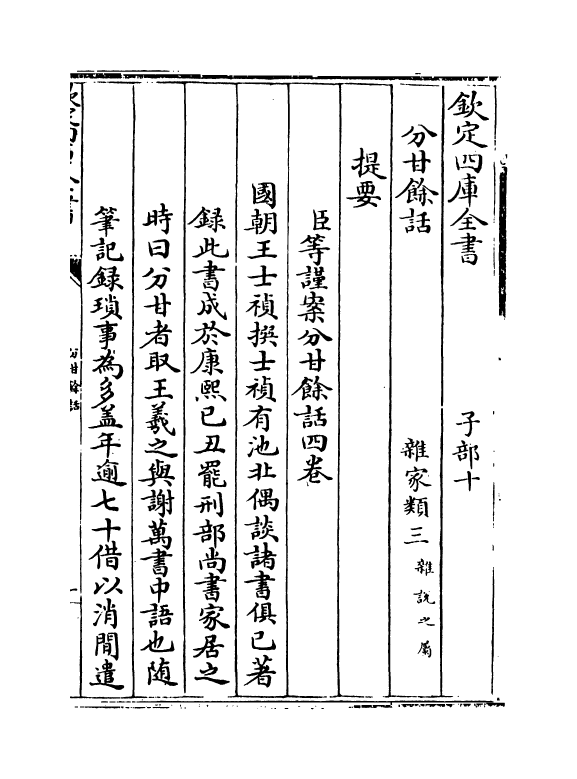 欽定四庫全書　子部十
分甘餘話　雜家類三雜說之屬
提要
臣等謹案分甘餘話四卷
國朝王士禎撰士禎有池北偶談諸書俱已著
録此書成於康熙己丑罷刑部尚書家居之
時曰分甘者取王羲之與謝萬書中語也隨
筆記録瑣事為多蓋年逾七十借以消閒遣
分甘餘話
一